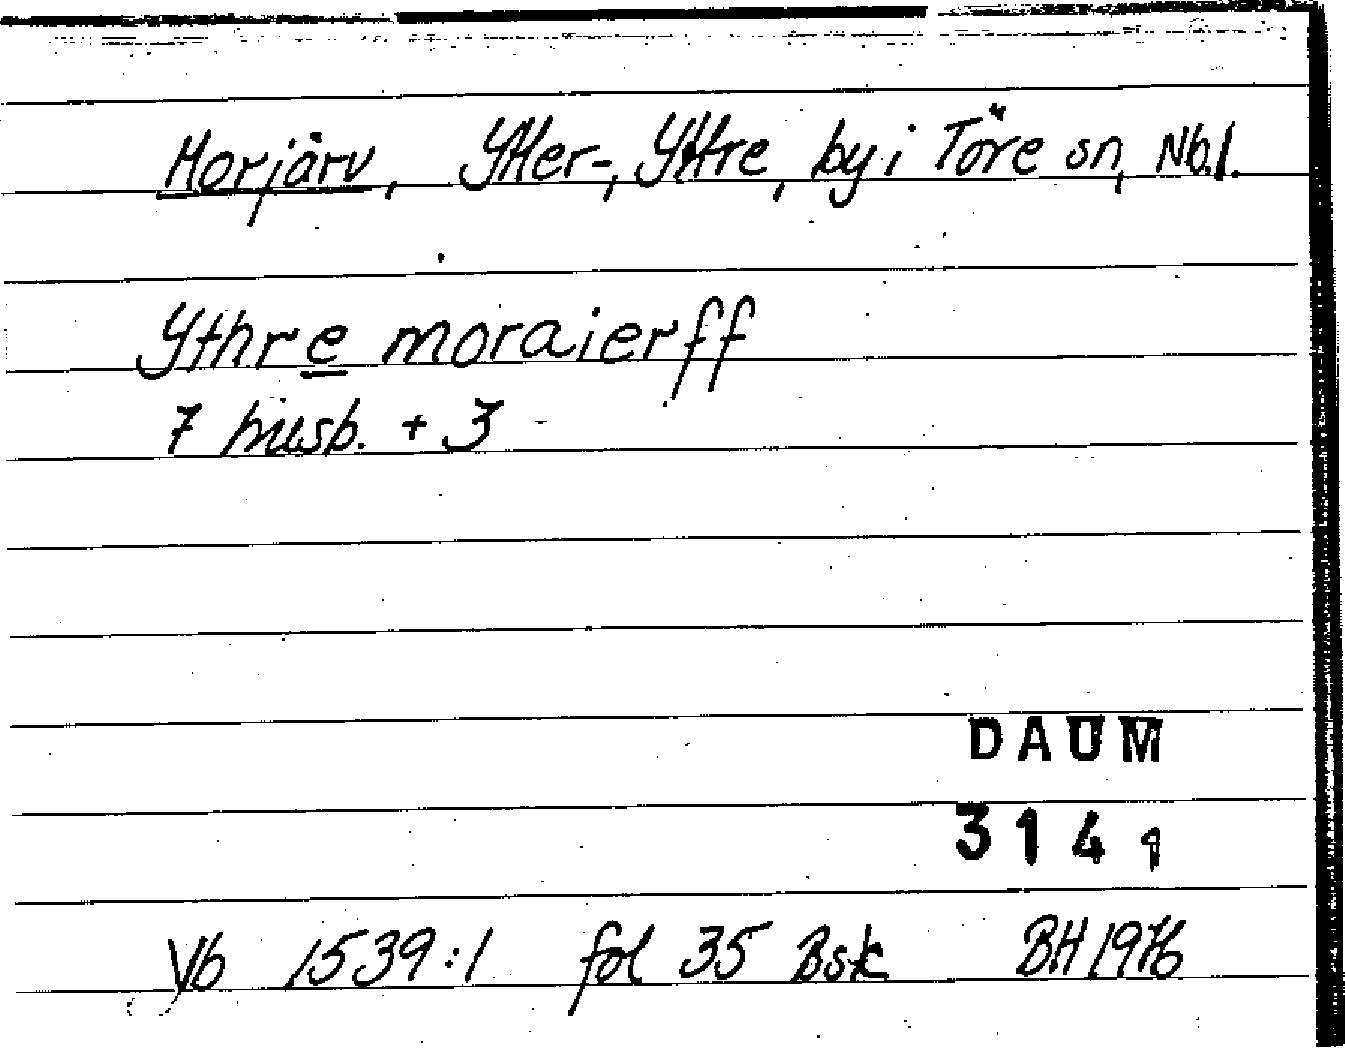 Morjärv, Ytter-, Yttre, by i Töre sn, Nb.l.
Ythre moraierff
7 husb. + 3
DAUM
3141
Vb 1539:1 fol 35 Bsk BH 1976